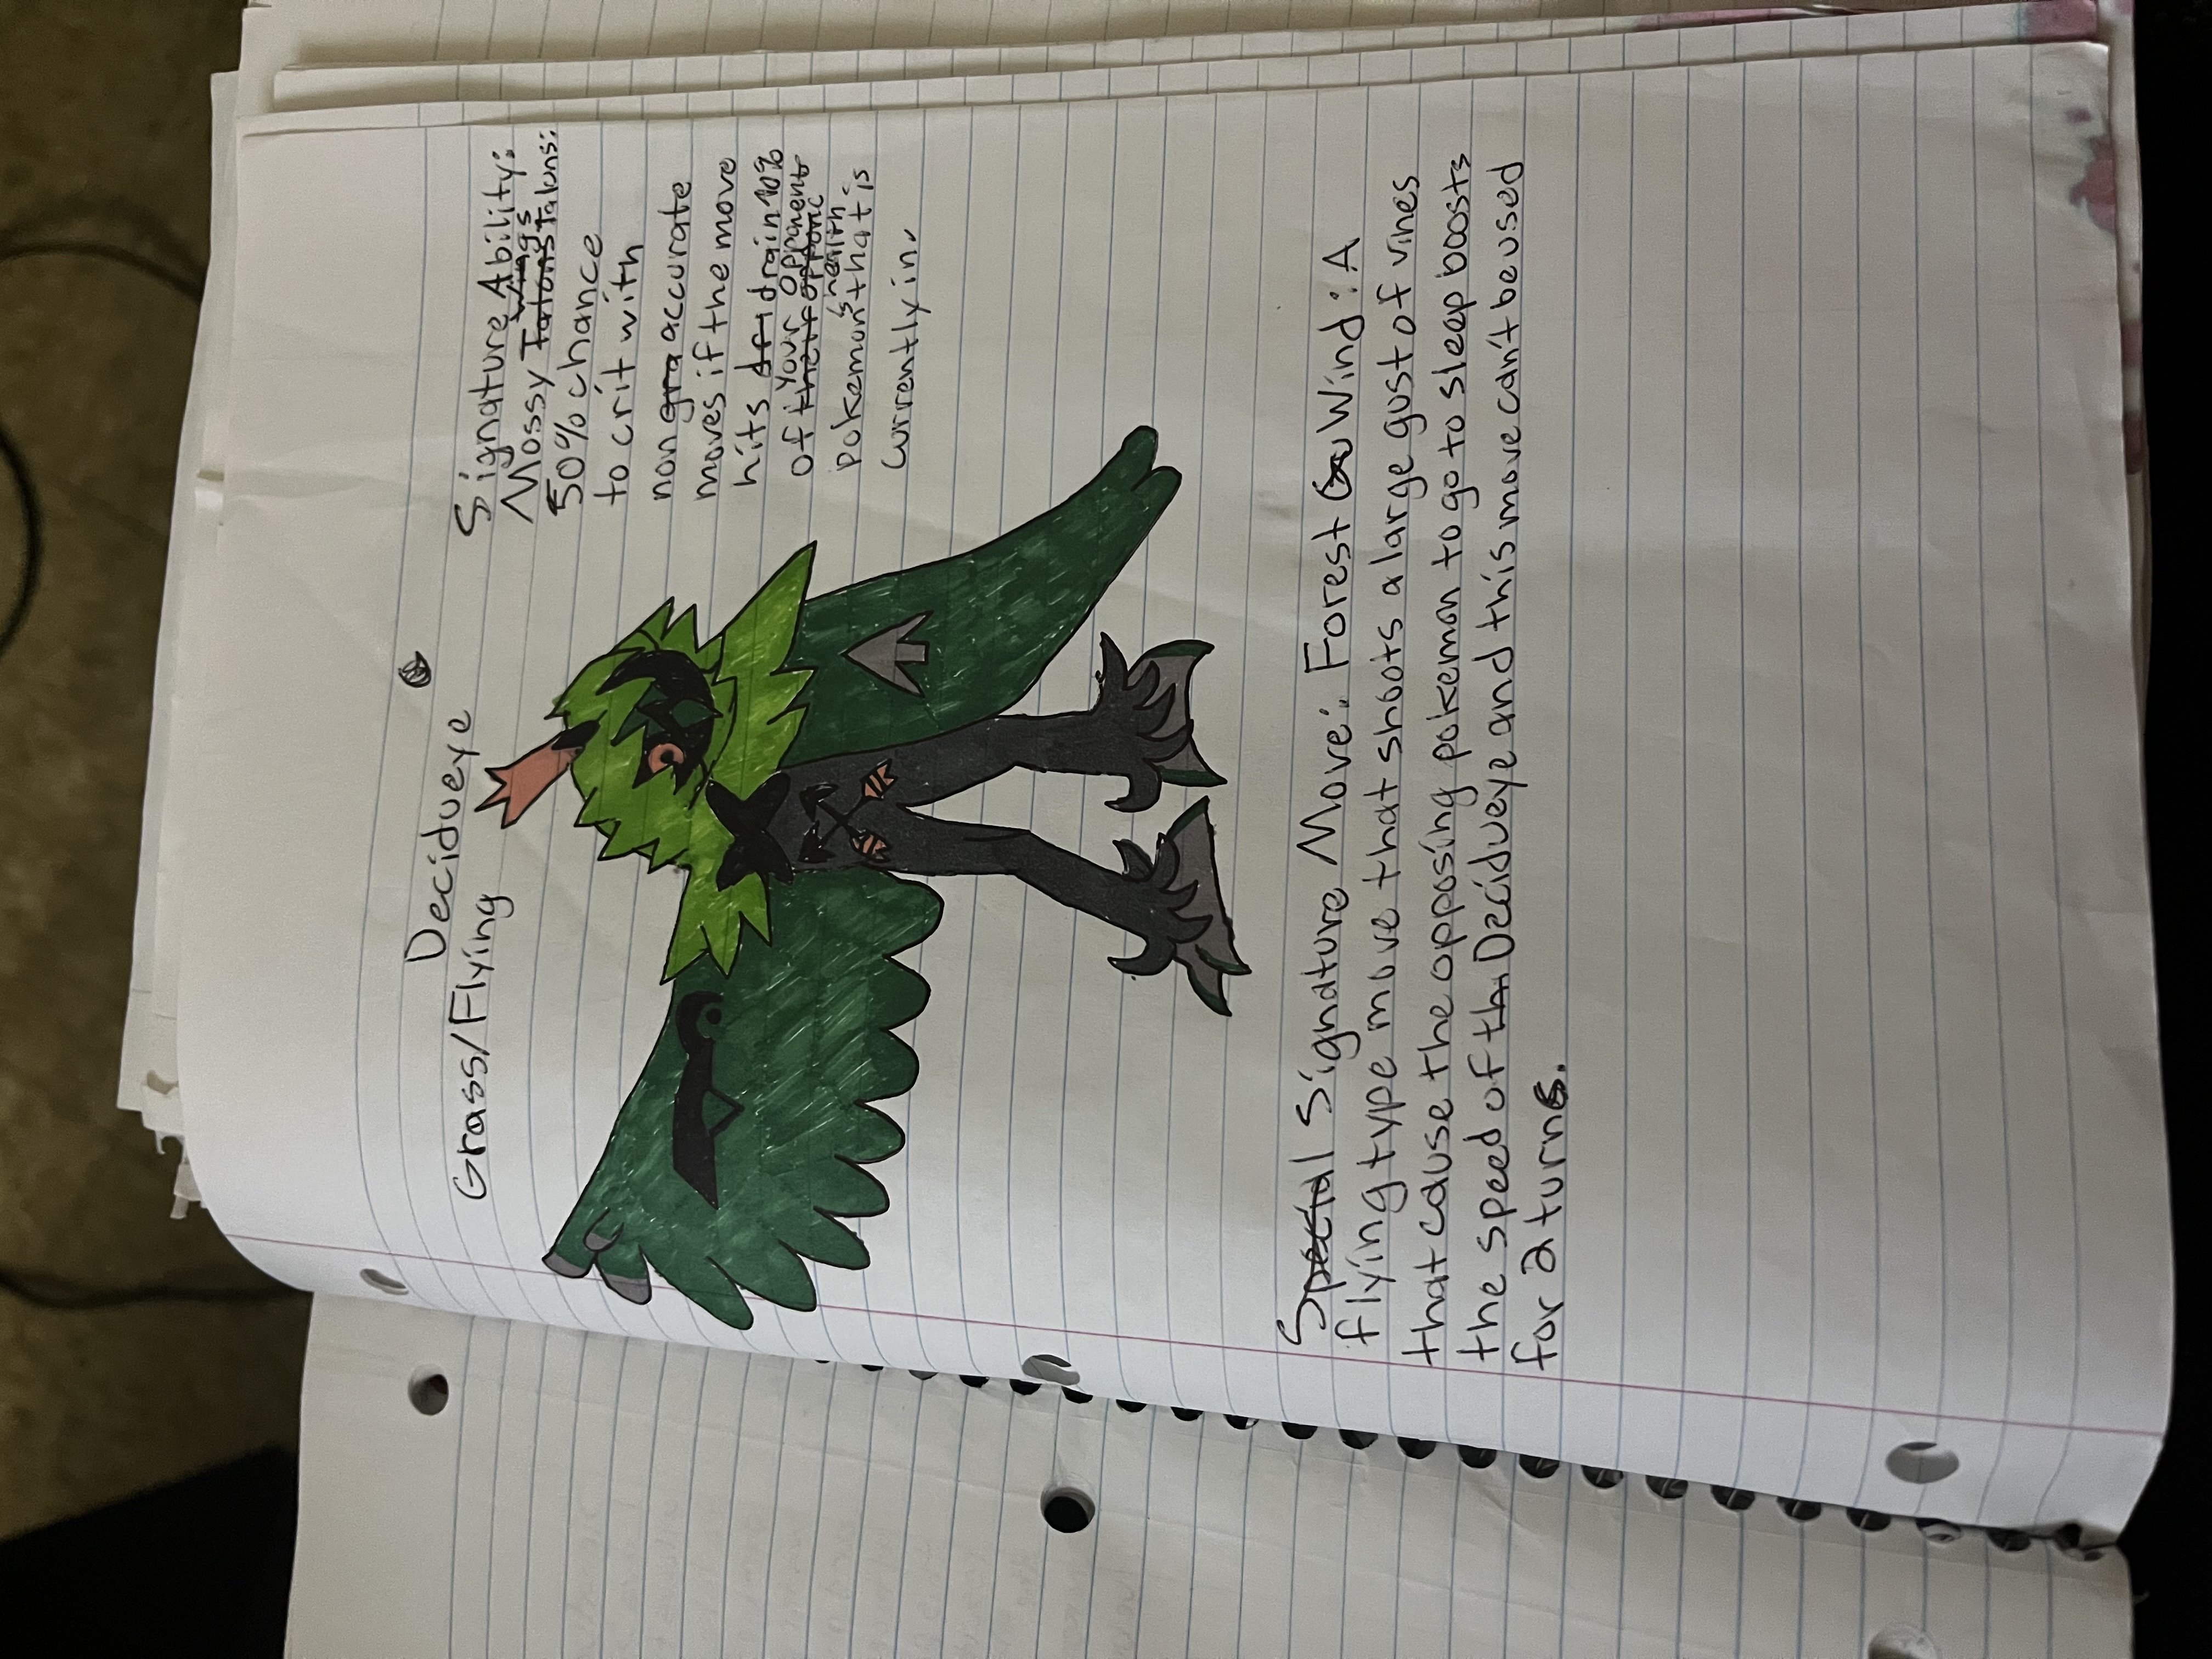 Decidueye
Grass/Flying
Signature Ability:
Wings
Mossy Talons Talons:
50% chance
to crit with
non gra accurate
moves if the move
hits dri drain 10%
your opponent
of their opponc
s health
pokemon that is
currently in.
Special Signature Move: Forest Gu Wind: A
flying type move that shoots a large gust of vines
that cause the opposing pokemon to go to sleep boosts
the speed of th Decidueye and this move can't be used
for 2 turns.